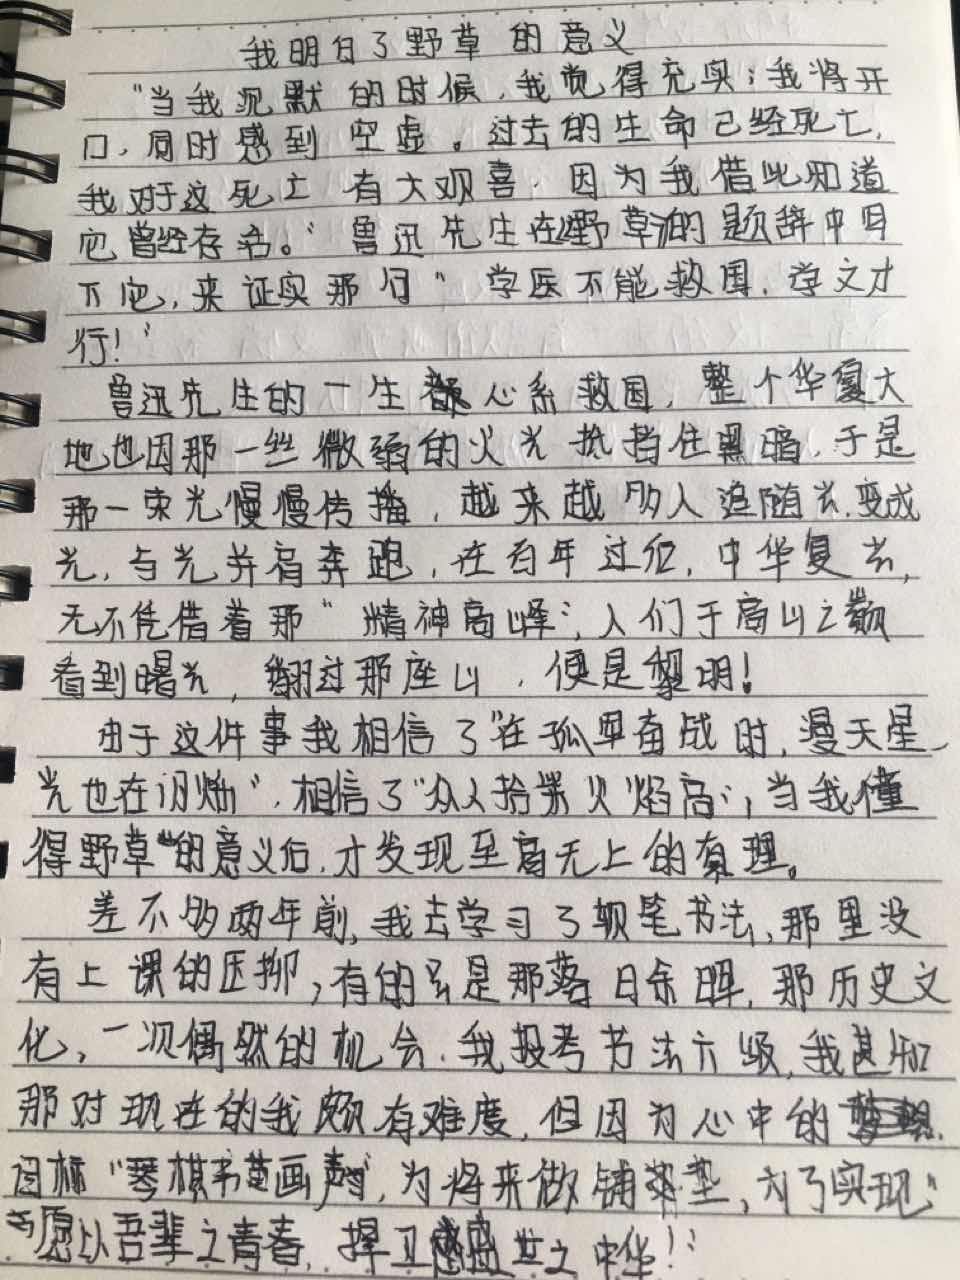 我明白了野草的意义
"当我沉默的时候,我觉得充实;我将开
口,同时感到空虚。过去的生命已经死亡,
我对于这死亡有大观喜.因为我借此知道
它曾经存活。"鲁迅先生在野草的题辞中写
下它,来证实那句"学医不能救国,学文才
行!"
鲁迅先生的一生都心系救国,整个华夏大
地也因那一丝微弱的火光抵挡住黑暗,于是
那一束光慢慢传播,越来越多人追随光,变成
光,与光并肩奔跑,在百年过后,中华复兴,
无不凭借着那"精神高峰",人们于高山之巅
看到曙光,翻过那座山,便是黎明!
由于这件事我相信了"在孤军奋战时,漫天星
光也在闪烁",相信了"众人拾柴火焰高",当我懂
得野草的意义后,才发现至高无上的真理。
差不多两年前,我去学习了软笔书法,那里没
有上课的压抑,有的只是那落日余晖,那历史文
化,一次偶然的机会,我报考书法六级,我甚知
那对现在的我颇有难度,但因为心中的
目标"琴棋书画",为将来做铺垫,为了实现
"愿以吾辈之青春,捍卫盛世之中华!"